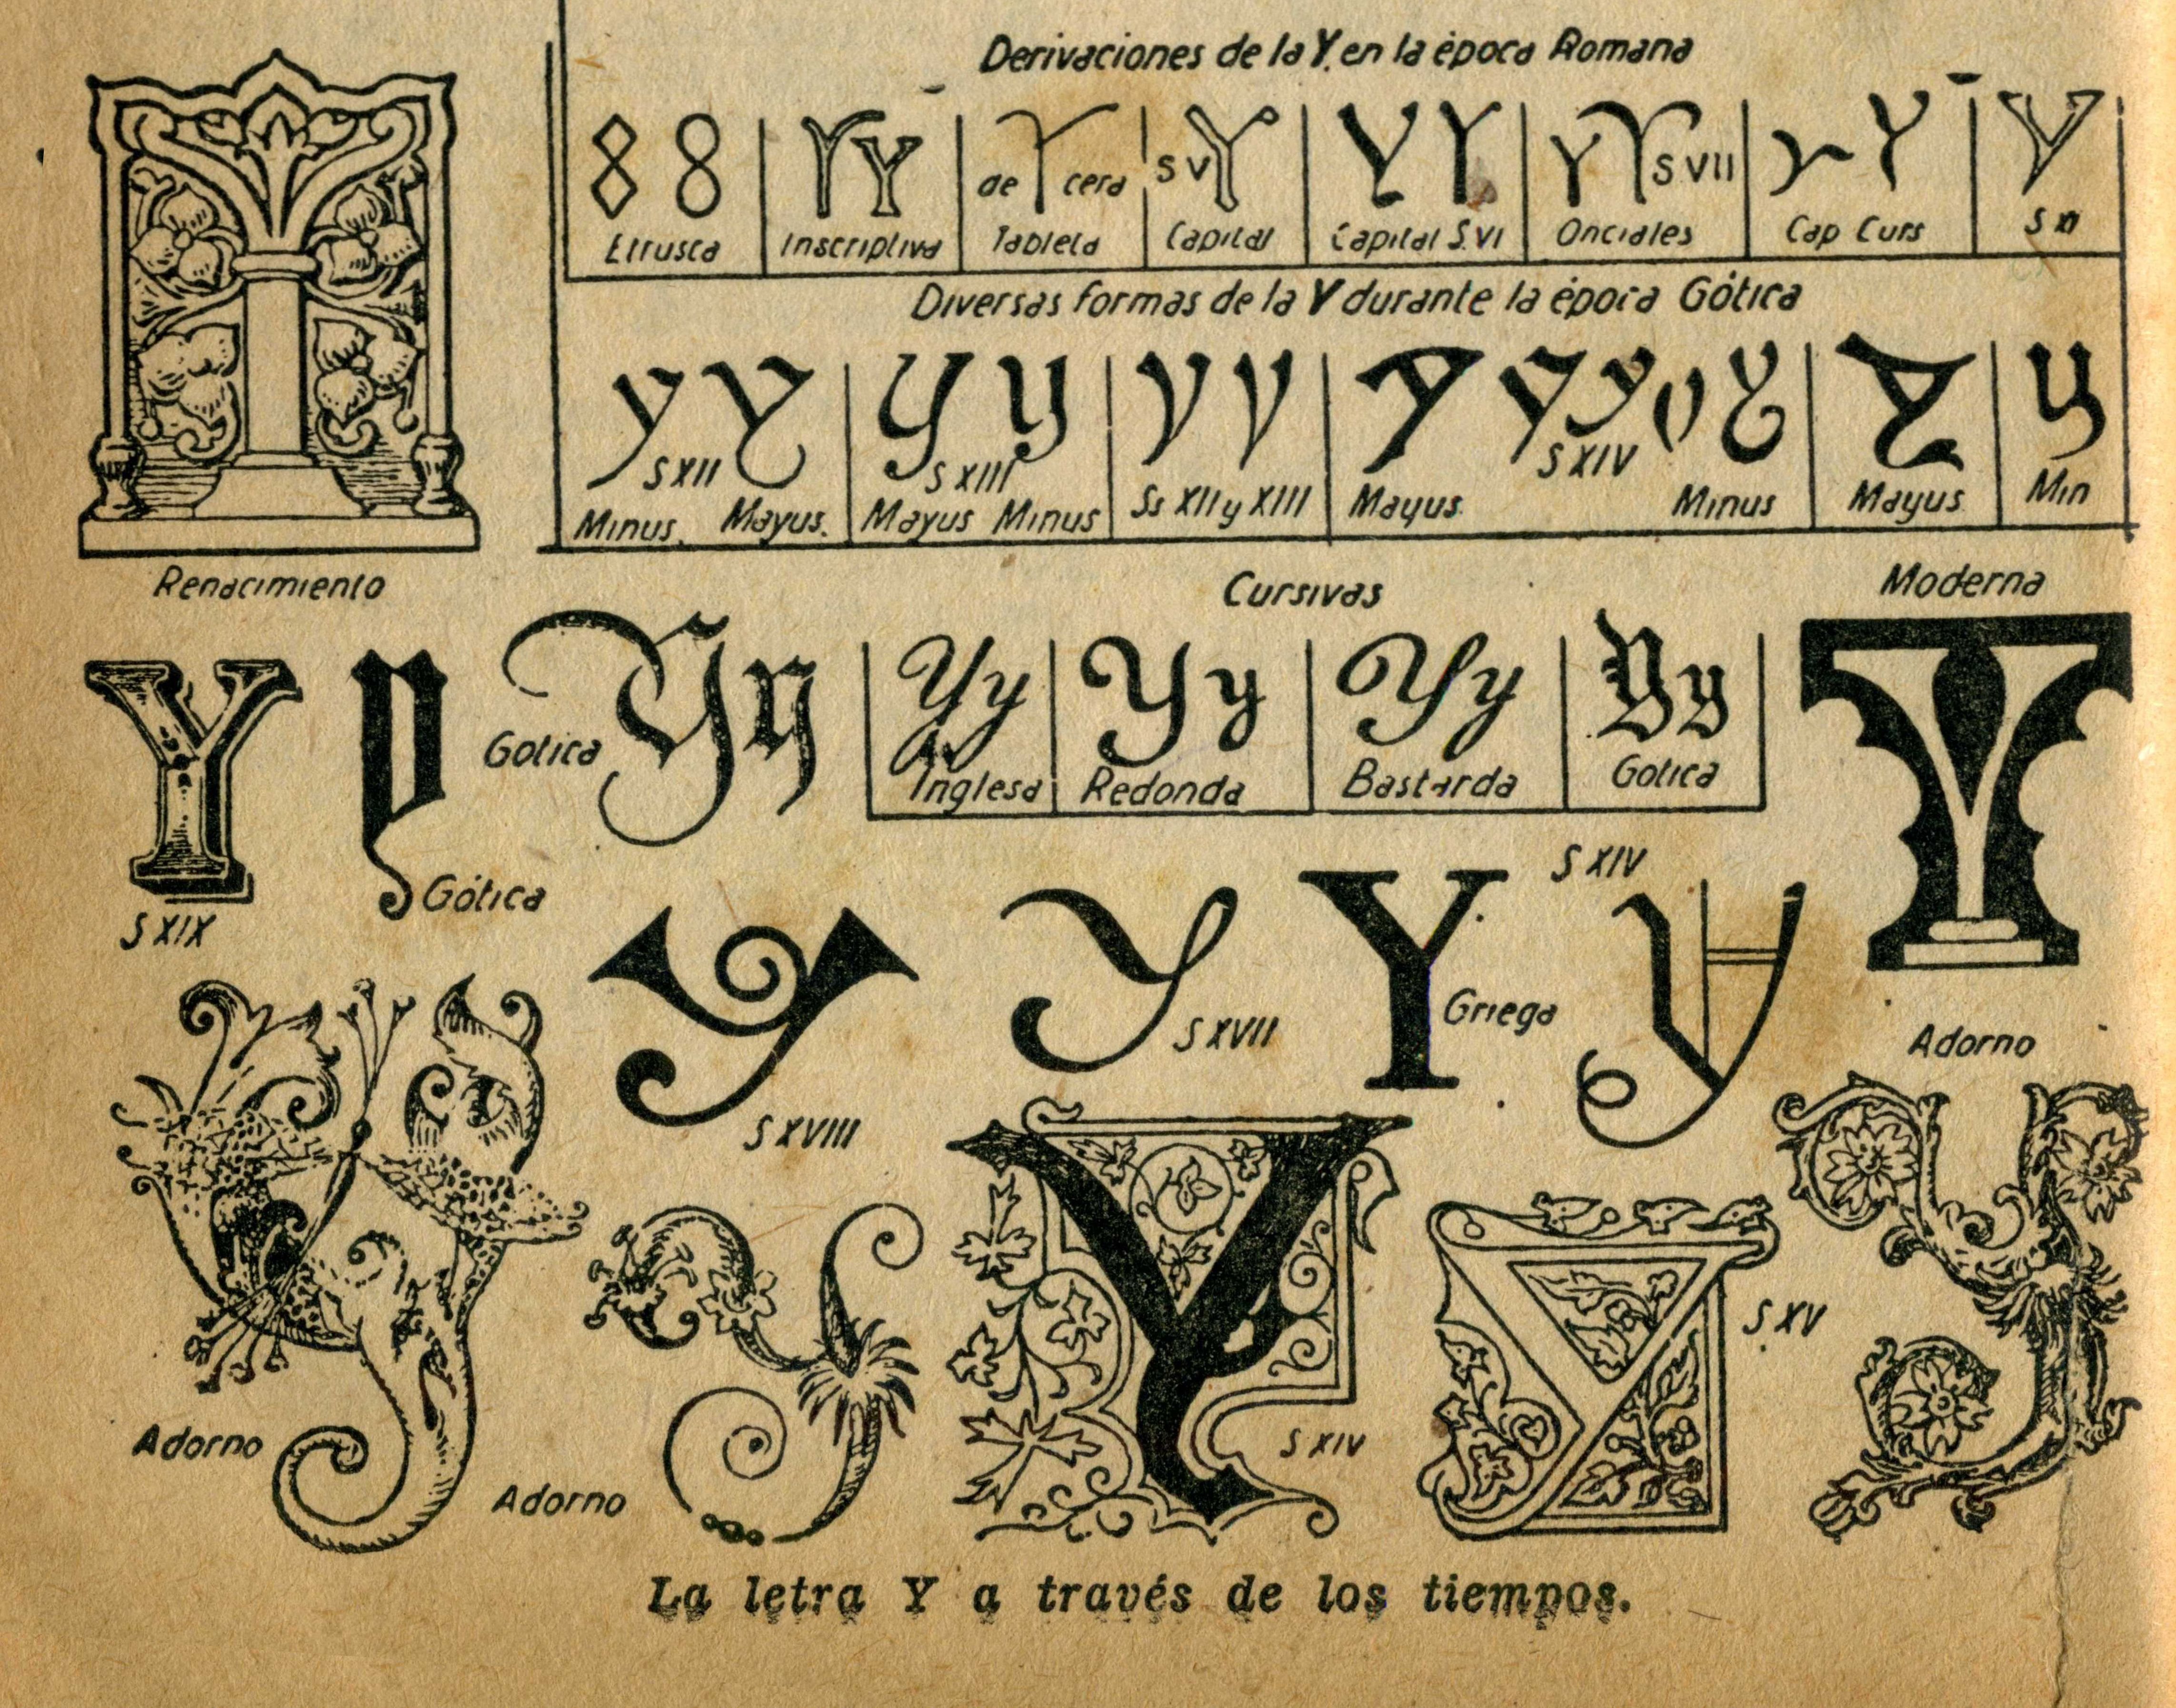 Derivaciones de la Y en la época Romana
S V
S VII
de cera
Etrusca Inscriptiva Tableta Capital Capital S. VI Onciales Cap Curs S XI
Diversas formas de la Y durante la época Gótica
S XII S XIII S XIV
Minus. Mayus. Mayus Minus Ss XII y XIII Mayus Minus Mayus Min
Renacimiento
Cursivas
Moderna
Y
Yy Yy Yy Yy
Gotica
Inglesa Redonda Bastarda Gotica
Gótica
S XIX
S XIV
Y
Griega
S XVII
S XVIII
Adorno
S XV
S XIV
Adorno
Adorno
La letra Y a través de los tiempos.